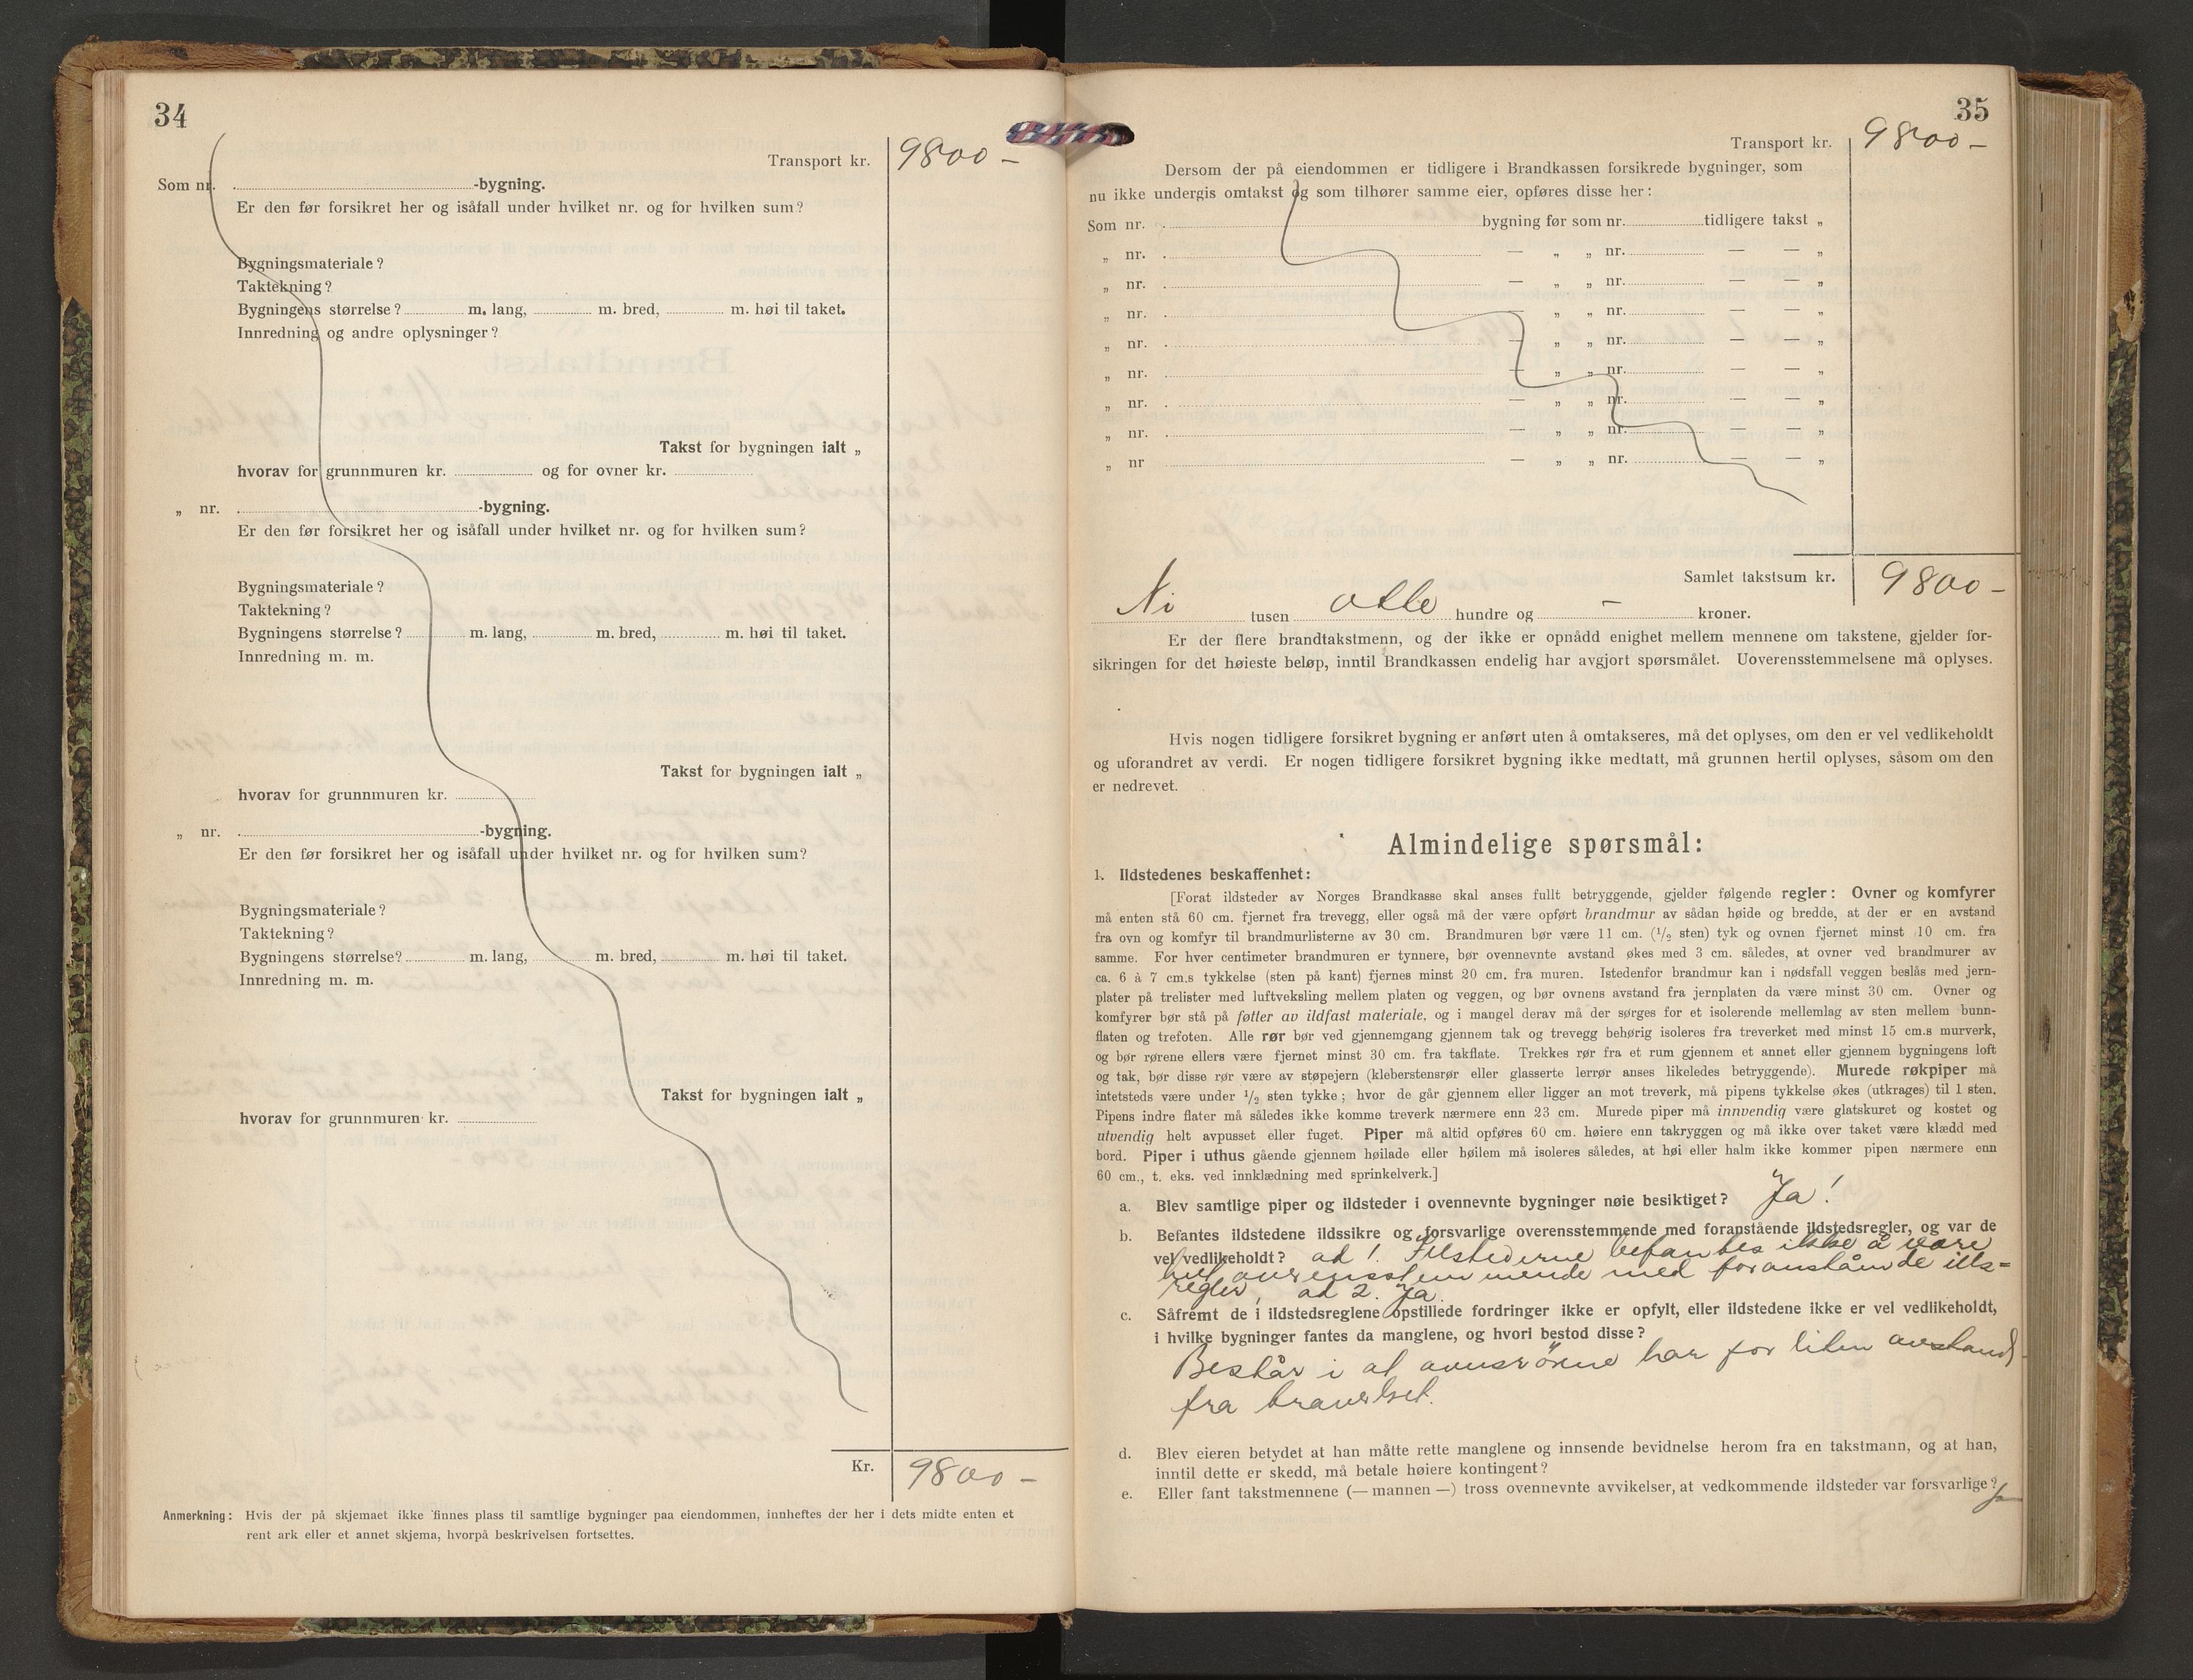 34
Transport kr. 9800 –
Som nr. -bygning.
Er den før forsikret her og isåfall under hvilket nr. og for hvilken sum?
Bygningsmateriale?
Taktekning?
Bygningens størrelse? m. lang, m. bred, m. høi til taket.
Innredning og andre oplysninger?
Takst for bygningen ialt „
hvorav for grunnmuren kr. og for ovner kr.
„ nr. -bygning.
Er den før forsikret her og isåfall under hvilket nr. og for hvilken sum?
Bygningsmateriale?
Taktekning?
Bygningens størrelse? m. lang, m. bred, m. høi til taket.
Innredning m. m.
Takst for bygningen ialt „
hvorav for grunnmuren kr.
„ nr. -bygning.
Er den før forsikret her og isåfall under hvilket nr. og for hvilken sum?
Bygningsmateriale?
Taktekning?
Bygningens størrelse? m. lang, m. bred, m. høi til taket.
Innredning m. m.
Takst for bygningen ialt „
hvorav for grunnmuren kr.
Kr. 9800 –
Anmerkning: Hvis der på skjemaet ikke finnes plass til samtlige bygninger paa eiendommen, innheftes der her i dets midte enten et
rent ark eller et annet skjema, hvorpå beskrivelsen fortsettes.
35
Transport kr. 9800 –
Dersom der på eiendommen er tidligere i Brandkassen forsikrede bygninger, som
nu ikke undergis omtakst og som tilhører samme eier, opføres disse her:
Som nr. bygning før som nr. tidligere takst „
„ nr. — „ „ nr. — — „
„ nr. — „ „ nr. — — „
„ nr. — „ „ nr. — — „
„ nr. — „ „ nr. — — „
„ nr. — „ „ nr. — — „
„ nr. — „ „ nr. — — „
„ nr. — „ „ nr. — — „
„ nr — „ „ nr. — — „
Samlet takstsum kr. 9800 –
Ni tusen otte hundre og – kroner.
Er der flere brandtakstmenn, og der ikke er opnådd enighet mellem mennene om takstene, gjelder for-
sikringen for det høieste beløp, inntil Brandkassen endelig har avgjort spørsmålet. Uoverensstemmelsene må oplyses.
Hvis nogen tidligere forsikret bygning er anført uten å omtakseres, må det oplyses, om den er vel vedlikeholdt
og uforandret av verdi. Er nogen tidligere forsikret bygning ikke medtatt, må grunnen hertil oplyses, såsom om den
er nedrevet.
Almindelige spørsmål:
1. Ildstedenes beskaffenhet:
[Forat ildsteder av Norges Brandkasse skal anses fullt betryggende, gjelder følgende regler: Ovner og komfyrer
må enten stå 60 cm. fjernet fra trevegg, eller også må der være opført brandmur av sådan høide og bredde, at der er en avstand
fra ovn og komfyr til brandmurlisterne av 30 cm. Brandmuren bør være 11 cm. (1/2 sten) tyk og ovnen fjernet minst 10 cm. fra
samme. For hver centimeter brandmuren er tynnere, bør ovennevnte avstand økes med 3 cm. således, at ovner ved brandmurer av
ca. 6 à 7 cm.s tykkelse (sten på kant) fjernes minst 20 cm. fra muren. Istedenfor brandmur kan i nødsfall veggen beslås med jern-
plater på trelister med luftveksling mellem platen og veggen, og bør ovnens avstand fra jernplaten da være minst 30 cm. Ovner og
komfyrer bør stå på føtter av ildfast materiale, og i mangel derav må der sørges for et isolerende mellemlag av sten mellem bunn-
flaten og trefoten. Alle rør bør ved gjennemgang gjennem tak og trevegg behørig isoleres fra treverket med minst 15 cm.s murverk,
og bør rørene ellers være fjernet minst 30 cm. fra takflate. Trekkes rør fra et rum gjennem et annet eller gjennem bygningens loft
og tak, bør disse rør være av støpejern (kleberstensrør eller glasserte lerrør anses likeledes betryggende). Murede røkpiper må
intetsteds være under 1/2 sten tykke; hvor de går gjennem eller ligger an mot treverk, må pipens tykkelse økes (utkrages) til 1 sten.
Pipens indre flater må således ikke komme treverk nærmere enn 23 cm. Murede piper må innvendig være glatskuret og kostet og
utvendig helt avpusset eller fuget. Piper må altid opføres 60 cm. høiere enn takryggen og må ikke over taket være klædd med
bord. Piper i uthus gående gjennem høilade eller høilem må isoleres således, at høi eller halm ikke kommer pipen nærmere enn
60 cm., t. eks. ved innklædning med sprinkelverk.]
a. Blev samtlige piper og ildsteder i ovennevnte bygninger nøie besiktiget? Ja!
b. Befantes ildstedene ildssikre og forsvarlige overensstemmende med foranstående ildstedsregler, og var de
vel vedlikeholdt? ad 1. Ilstederne befantes ikke å være
helt overensstemmende med foranstående ills=
regler, ad 2. Ja.
c. Såfremt de i ildstedsreglene opstillede fordringer ikke er opfylt, eller ildstedene ikke er vel vedlikeholdt,
i hvilke bygninger fantes da manglene, og hvori bestod disse?
Består i at ovnsrörene har for liten avstand
fra
d. Blev eieren betydet at han måtte rette manglene og innsende bevidnelse herom fra en takstmann, og at han,
inntil dette er skedd, må betale høiere kontingent?
e. Eller fant takstmennene (— mannen —) tross ovennevnte avvikelser, at vedkommende ildsteder var forsvarlige? Ja